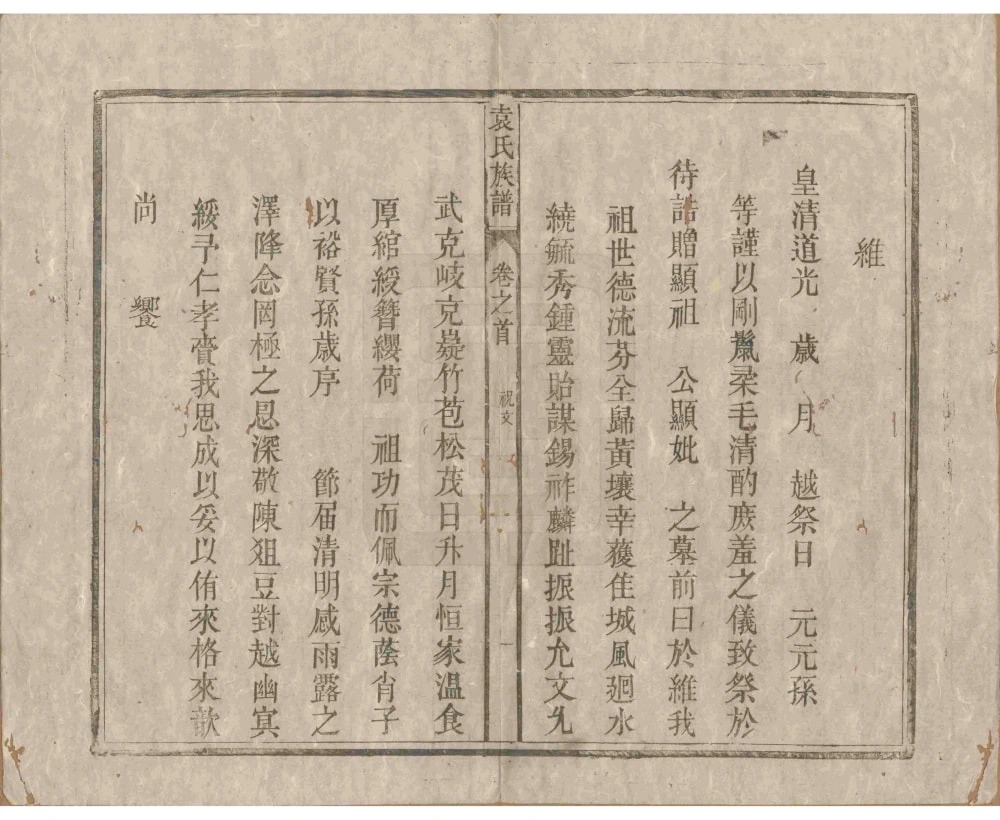 維
皇清道光　歲　月　越祭日　元元孫
等謹以剛鬣柔毛清酌庶羞之儀致祭於
待誥贈顯祖　公顯妣　之墓前曰於維我
祖世德流芬全歸黃壤幸獲佳城風廻水
繞毓秀鍾靈貽謀錫祚麟趾振振允文允
袁氏族譜
卷之首
祝文
一
武克岐克嶷竹苞松茂日升月恒家溫食
厚綰綬簪纓荷　祖功而佩宗德蔭肖子
以裕賢孫歲序　節届清明感雨露之
澤降念罔極之恩深敬陳俎豆對越幽冥
綏予仁孝賚我思成以妥以侑來格來歆
尚　饗